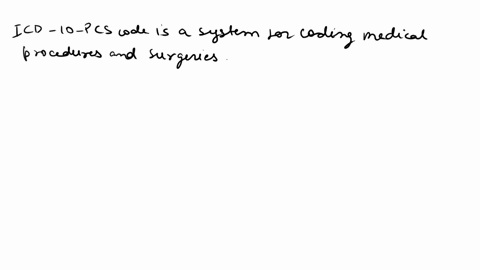 ICD-10-PCS code is a system for coding medical
procedures and surgeries.